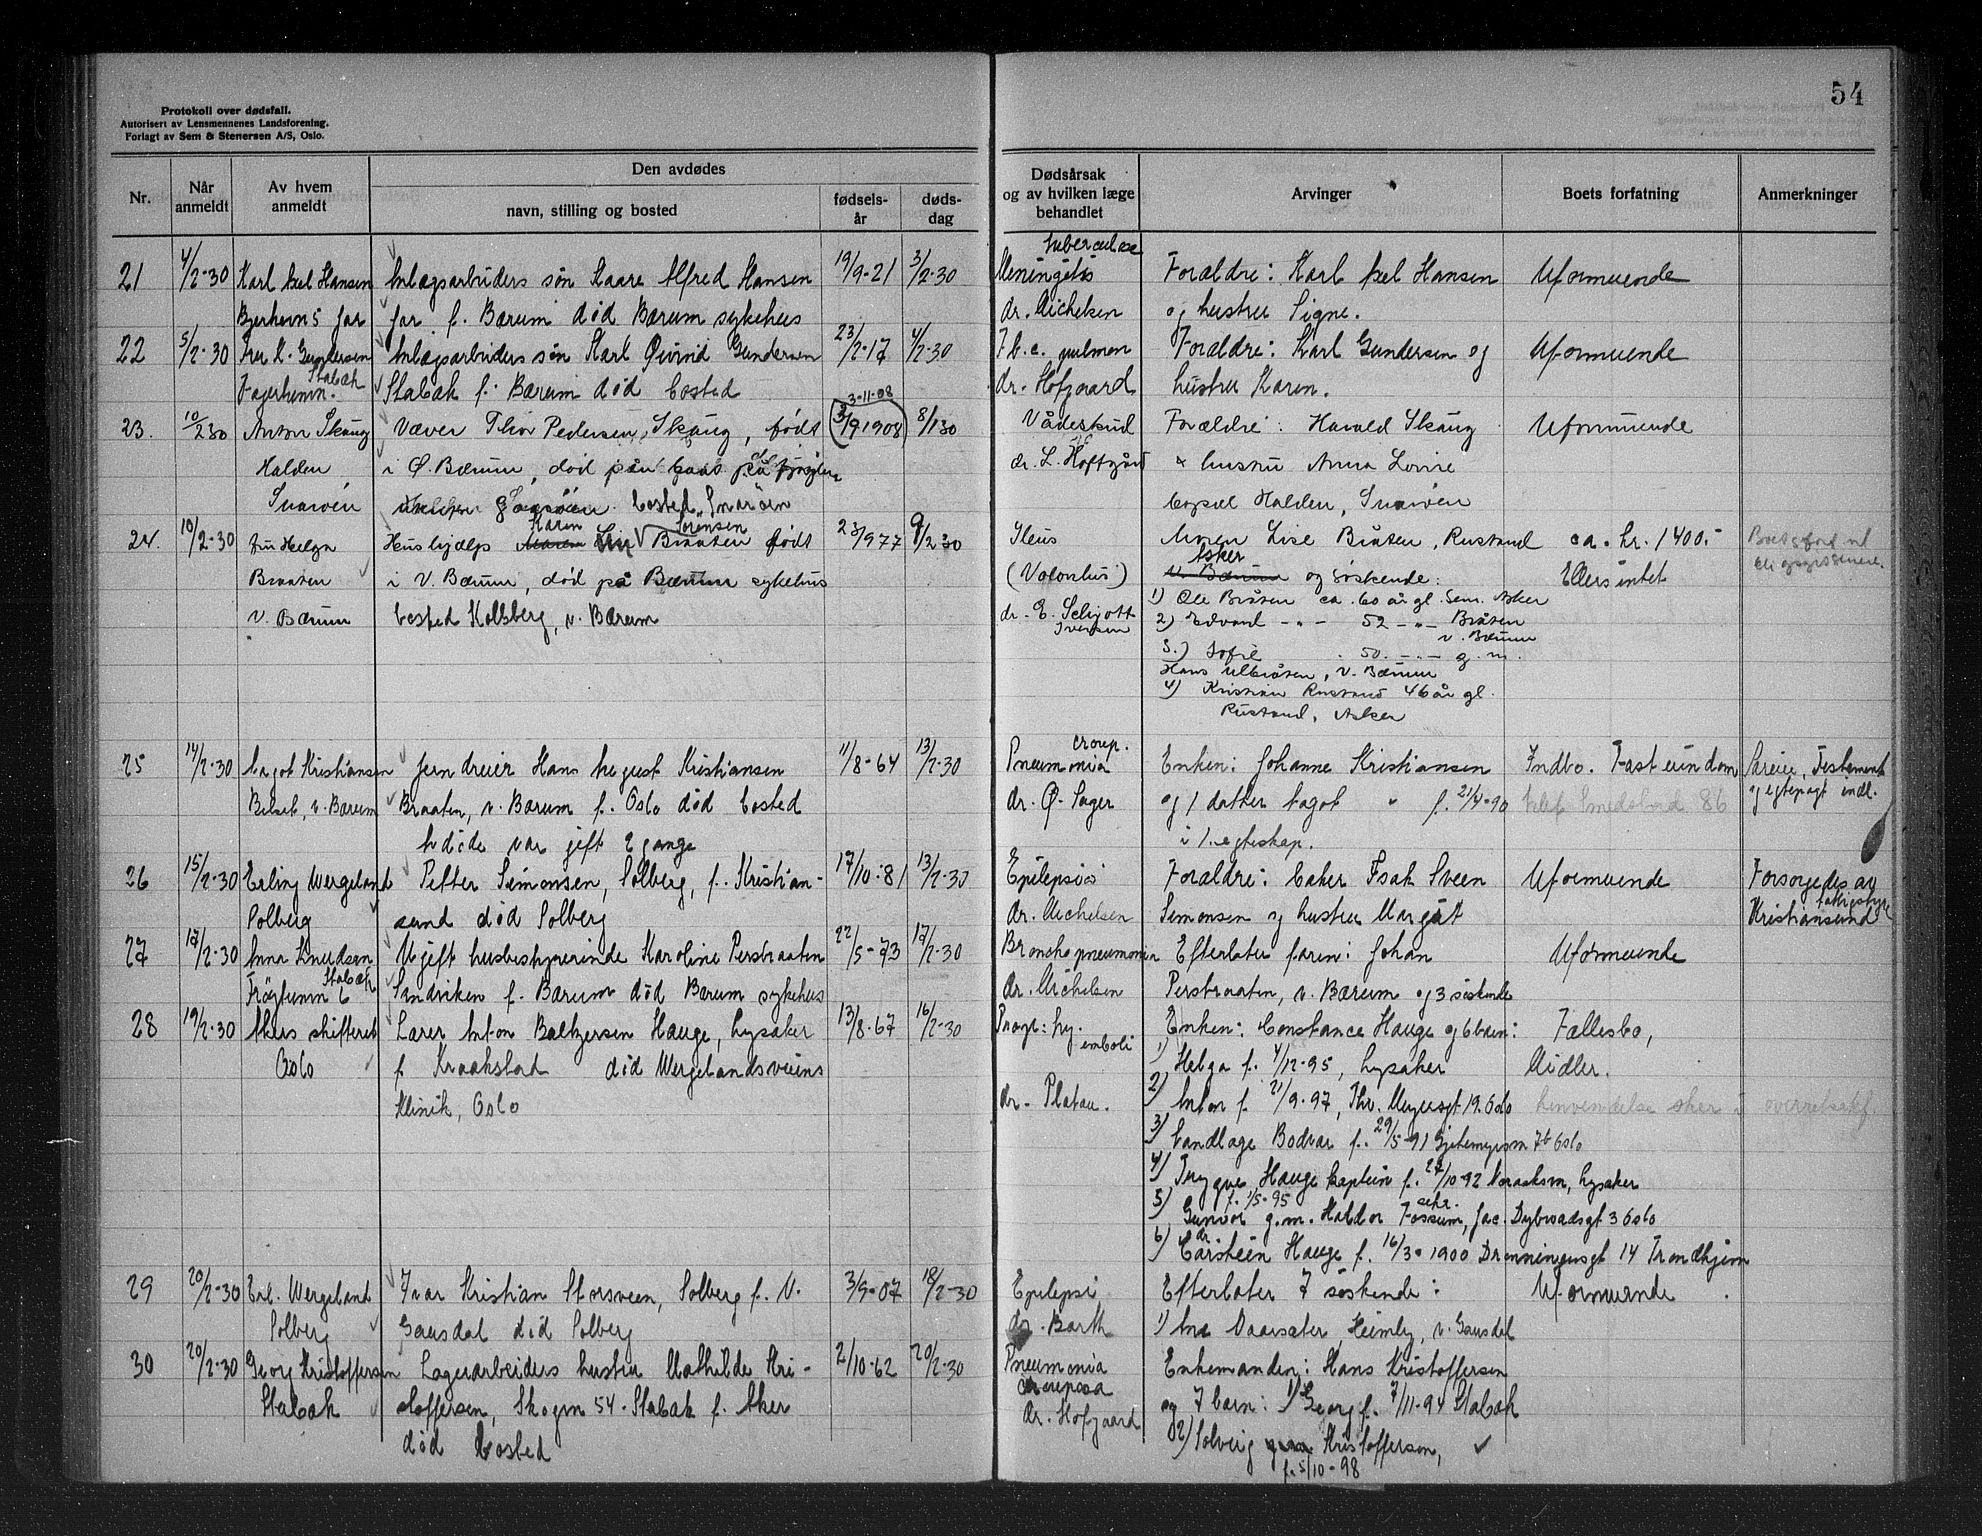 54
Protokoll over dødsfall.
Autorisert av Lensmennenes Landsforening.
Forlagt av Sem & Stenersen A/S, Oslo.
Nr.
Når anmeldt
Av hvem anmeldt
Den avdødes
navn, stilling og bosted
fødsels-år
døds-dag
Dødsårsak og av hvilken læge behandlet
Arvinger
Boets forfatning
Anmerkninger
21 4/2-30 Karl Axel Hansen Anlægsarbeiders søn Kaare Alfred Hansen 19/9-21 3/2-30 Meningitis tuberculose Forældre: Karl Axel Hansen Uformuende
far f. Bærum död Bærum sykehus dr. Michelsen og hustru Signe.
22 5/2-30 Fru K. Gundersen Anlægsarbeiders søn Karl Øivind Gundersen 23/2-17 4/2-30 T.b.c. pulmon Forældre: Karl Gundersen og Uformuende
Stabæk
Stabæk f. Bærum död bosted dr. Hofgaard hustru Karen.
3-11-08
23. 10/2 30 Anton Skaug Væver Thor Pedersen Skaug, født (3/9 1908) 8/1 30 Vådeskud Forældre: Harald Skaug Uformuende
Halden i Ø. Bærum, död dr. L. Hoftgård & hustru Anna Lovise
Snarøen bosted Snarøen bopæl Halden, Snarøen
24. 10/2-30 Fru Helga Hushjælps Karen Braaten Sørensen født 23/9 77 9/2 30 Ileus Moren Lise Bråten, Rustand ca. kr. 1400.-
Braaten i V. Bærum, död på Bærum sykehus (Volvulus) V. Bærum Asker og søskende: Ellers intet
V. Bærum bosted Kolsberg, v. Bærum dr. E. Schjøtt Iversen 1) Ole Bråten ca. 60 år gl. Sem. Asker
2) Edvard -"- 52 -"- Bråten v. Bærum
3.) Sofie 50. -"- g.m.
Hans Ulbråten, V. Bærum
4) Kristian Rustand 46 år gl.
Rustand, Asker
25 14/2-30 Aagot Kristiansen Jerndreier Hans August Kristiansen 11/8-64 13/2-30 Pneumonia croup. Enken: Johanne Kristiansen Indbo. Fast eiendom Særeie, Testament
Belset, v. Bærum Braaten, v. Bærum f. Oslo död bosted dr. Ø. Sager og 1 datter Aagot " f. 21/4-90 Smedstad 86 og egtepagt indl.
Avdöde var gift 2 gange i 1. egteskap.
26 15/2-30 Erling Wergeland Petter Simonsen, Solberg, f. Kristian- 17/10-81 13/2-30 Epilepsi Forældre: baker Isak Sveen Uformuende Forsorgedes av
Solberg sund död Solberg dr. Michelsen Simonsen og hustru Margit fattigstyre Kristiansund
27 17/2-30 Anna Knudsen Ugift husbestyrerinde Karoline Persbraaten 22/5-73 17/2-30 Bronchopneumonia Efterlater faren: Johan Uformuende
Stabæk
Sandviken f. Bærum död Bærum sykehus dr. Michelsen Persbraaten, v. Bærum og 3 söskende
28 19/2-30 Akers skifteret Lærer Anton Baltzersen Hauge, Lysaker 13/8-67 16/2-30 emboli Enken: Constance Hauge og 6 barn: Fællesbo,
Oslo f Kraakstad död Wergelandsveiens 1) Helga f. 4/12-95, Lysaker Midler.
Klinik, Oslo dr. Platou. 2) Anton f. 21/9-97, Thv. Meyersgt 19. Oslo henvendelse sker i overretssakf.
3) Landlæge Bodvar f. 29/5-91 Gjetemyrsvn 76 Oslo
4) Trygve Hauge kaptein f. 27/10-92 Lysaker
5) Gunvor f. 1/5-95 g.m. Haldor Fossum, Jac. Dybwadsgt 3 Oslo
6) dr. Carsteen Hauge f. 16/3-1900 Dronningensgt 14 Trondhjem
29 20/2-30 Erl. Wergeland Ivar Kristian Storsveen, Solberg f. V. 3/9-07 18/2-30 Epilepsi Efterlater 7 søskende: Uformuende
Solberg Gausdal död Solberg dr. Barth 1) Heimly, v. Gausdal
30 20/2-30 Georg Kristoffersen Lagerarbeiders hustru Mathilde Kri- 2/10-62 20/2-30 Pneumonia Enkemanden: Hans Kristoffersen
Stabæk stoffersen, Skogvn 54. Stabæk f. Aker crouposa og 7 barn: 1) Georg f. 7/11-94 Stabæk
död bosted dr. Hofgaard 2) Solveig Kristoffersen,
f. 5/10-98